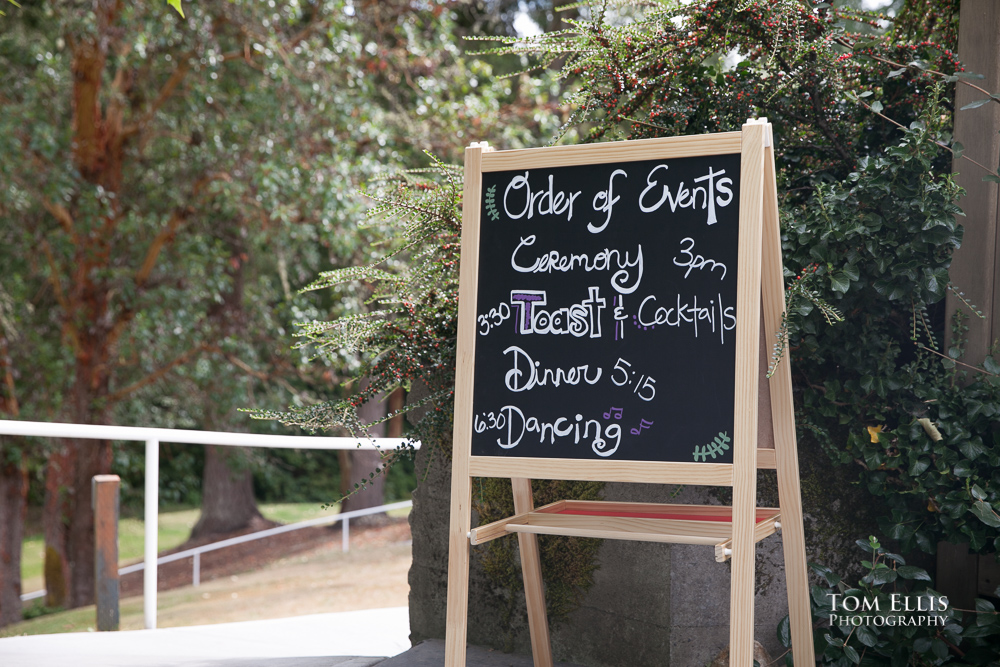 Order of Events
Ceremony 3pm
3:30 Toast & Cocktails
Dinner 5:15
6:30 Dancing
TOM ELLIS
PHOTOGRAPHY